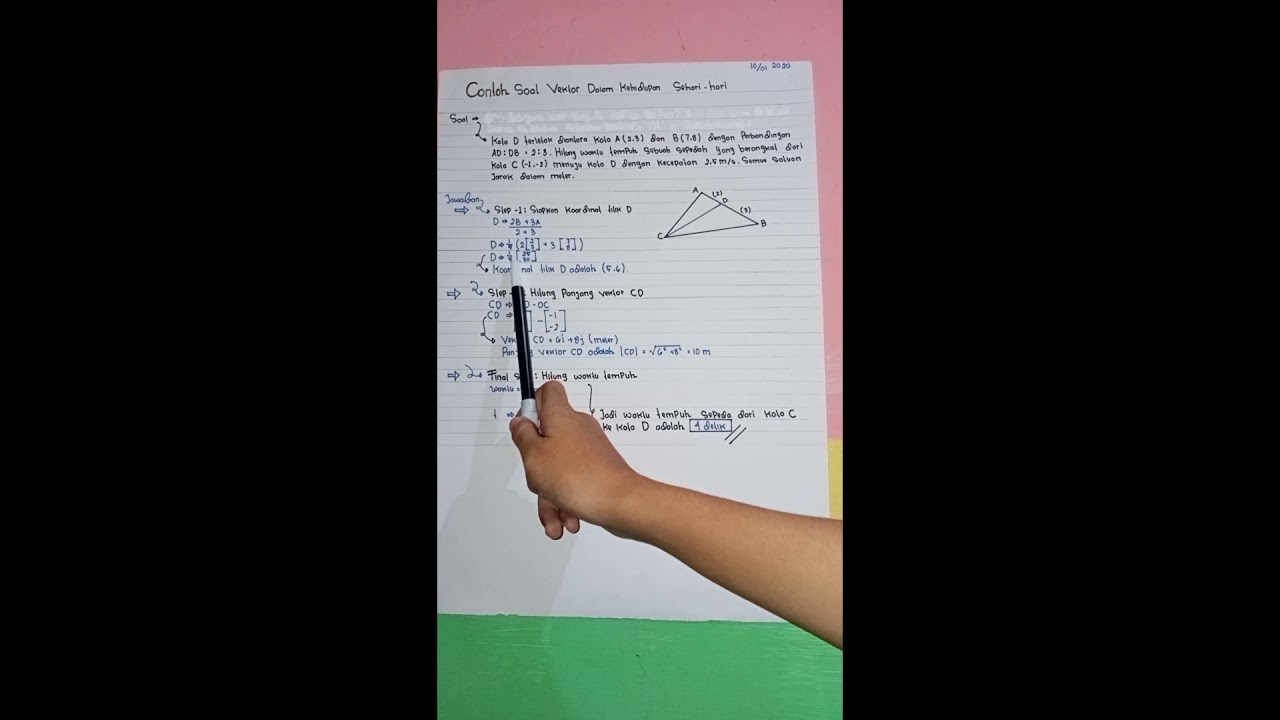 10/01 2020
Contoh Soal Vektor Dalam Kehidupan Sehari-hari
Soal →
Kota D terletak diantara Kota A (2,3) dan B (7,8) dengan Perbandingan
AD : DB = 2 : 3. Hitung waktu tempuh sebuah Sepedah yang berangkat dari
Kota C (-1,-2) menuju Kota D dengan Kecepatan 2.5 m/s. Semua Satuan
Jarak dalam meter.
Jawaban
⇒ Step-1: Siapkan Koordinat titik D
D ⇒ 2B + 3A
2 + 3
A
(2)
D
(3)
B
C
Koor nat titik D adalah (5,6).
⇒ Step Hitung Panjang vektor CD
CD ⇒ D - OC
CD ⇒ ] - [-1
-2]
Vek CD = 6i + 8j (meter)
Pan g vektor CD adalah |CD| = √6² + 8² = 10 m
⇒ Final S : Hitung waktu tempuh
waktu =
t ⇒
Jadi waktu tempuh Sepeda dari Kota C
ke Kota D adalah 4 detik